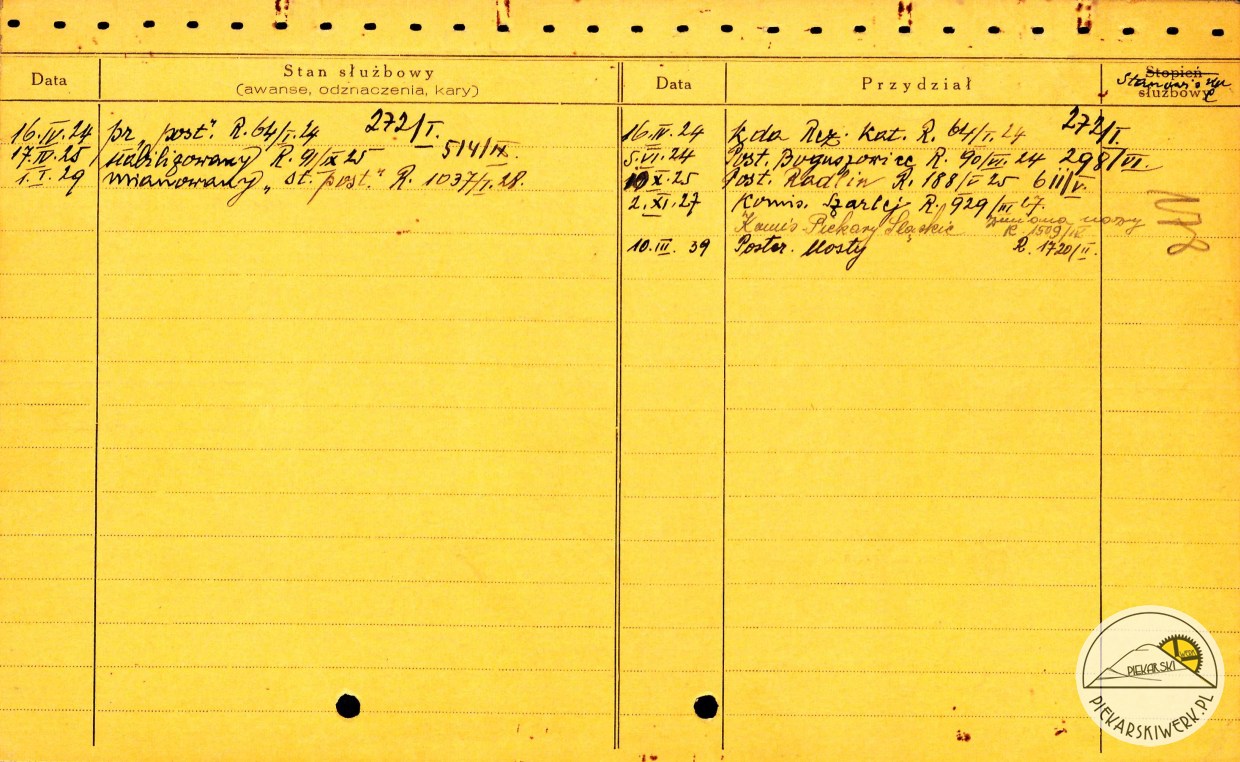 Data
Stan służbowy
(awanse, odznaczenia, kary)
16.IV.24 pr „post". R. 64/I.24 272/I.
17.IV.25 stabilizowany R. 91/IX 25 514/IX.
1.I.29 mianowany „st. post." R. 1037/I.28.
Data
Przydział
Stopień
służbowy
16.IV.24 Kda Rez. Kat. R. 64/I.24 272/I.
5.VI.24 Post. Boguszowice R. 90/VI.24 298/VI.
10 X.25 Post. Radlin R. 188/V 25 611/V.
2.XI.27 Komis. Szarlej R. 929/III 27.
Komis Piekary Śląskie zmiana nazwy
R. 1509/IV
10.III.39 Poster. Mosty R. 1720/II.
PIEKARSKI
WERK
PIEKARSKIWERK.PL